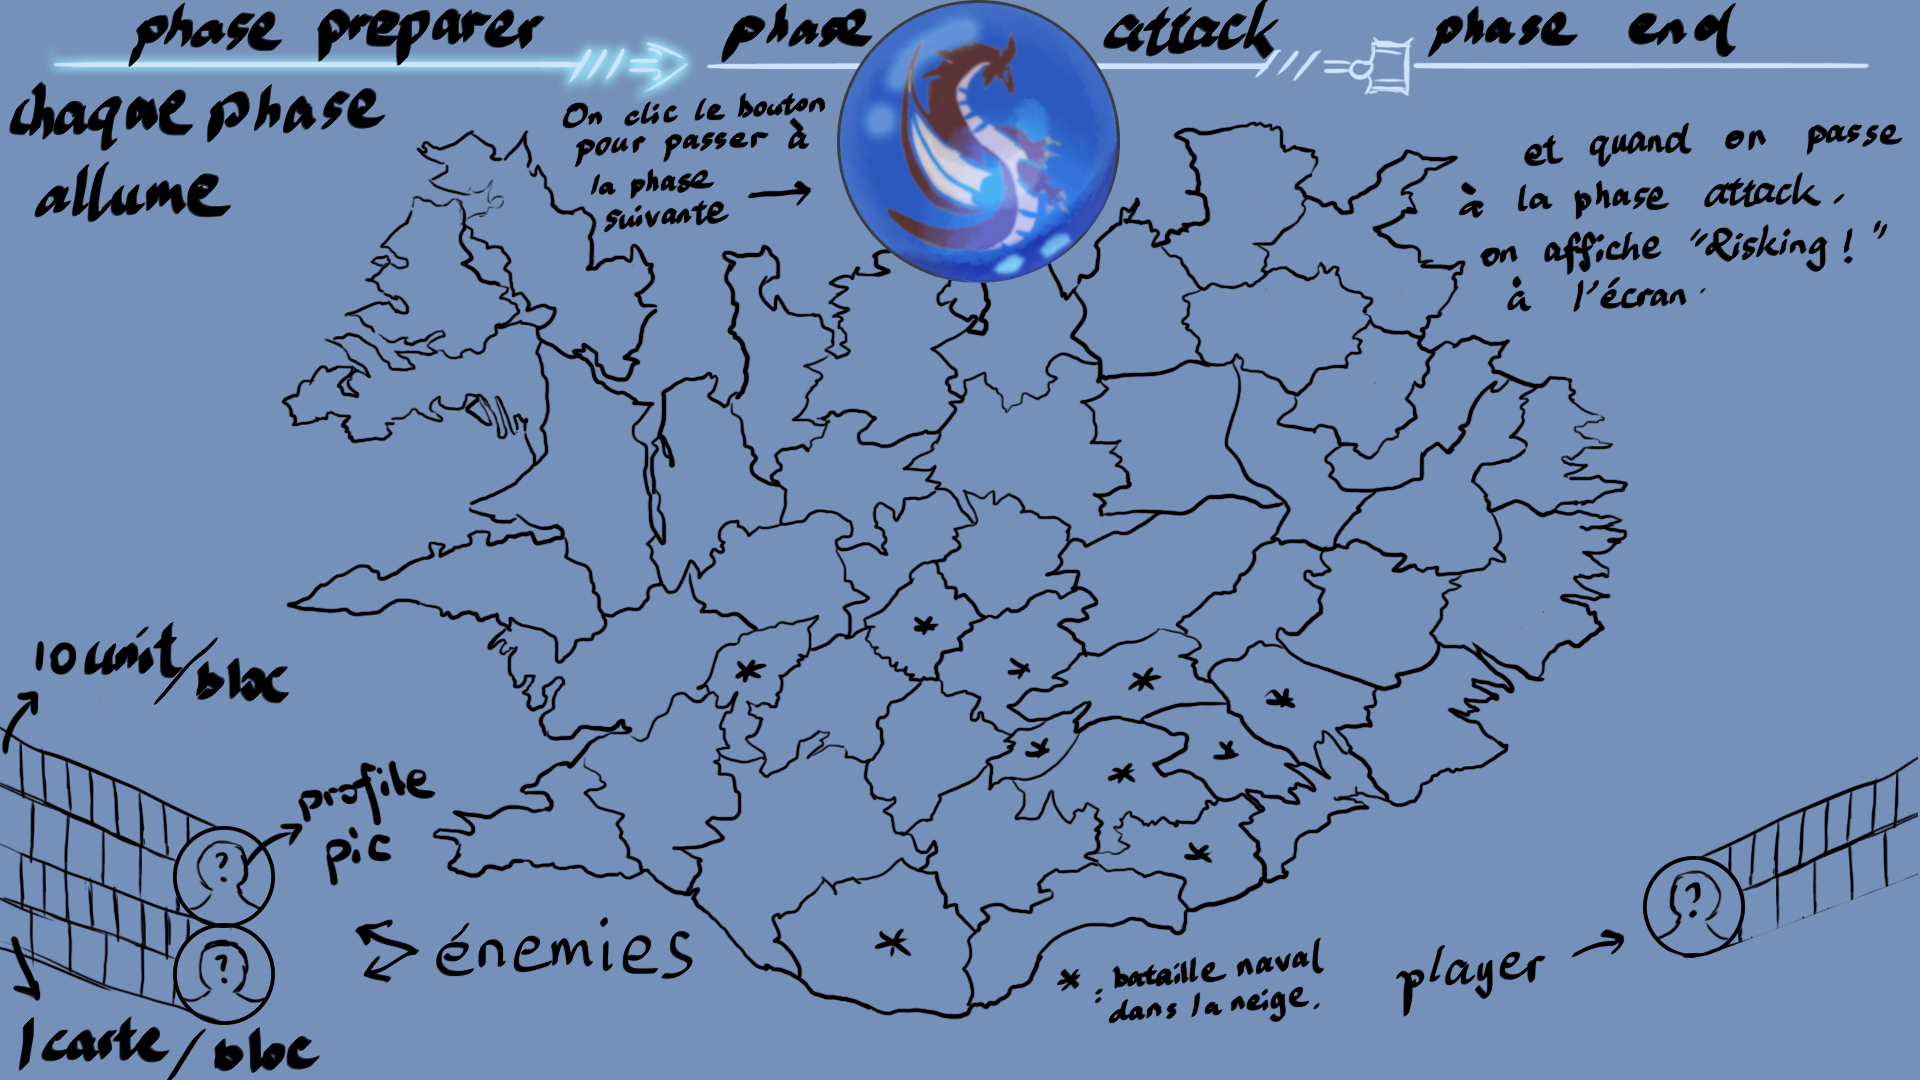 phase preparer
phase attack
phase end
chaque phase
allume
On clic le bouton
pour passer à
la phase
suivante
et quand on passe
à la phase attack,
on affiche "Risking!"
à l'écran.
10 unit/bloc
profile
pic
?
?
énemies
1 carte/bloc
* : bataille naval
dans la neige.
player
?